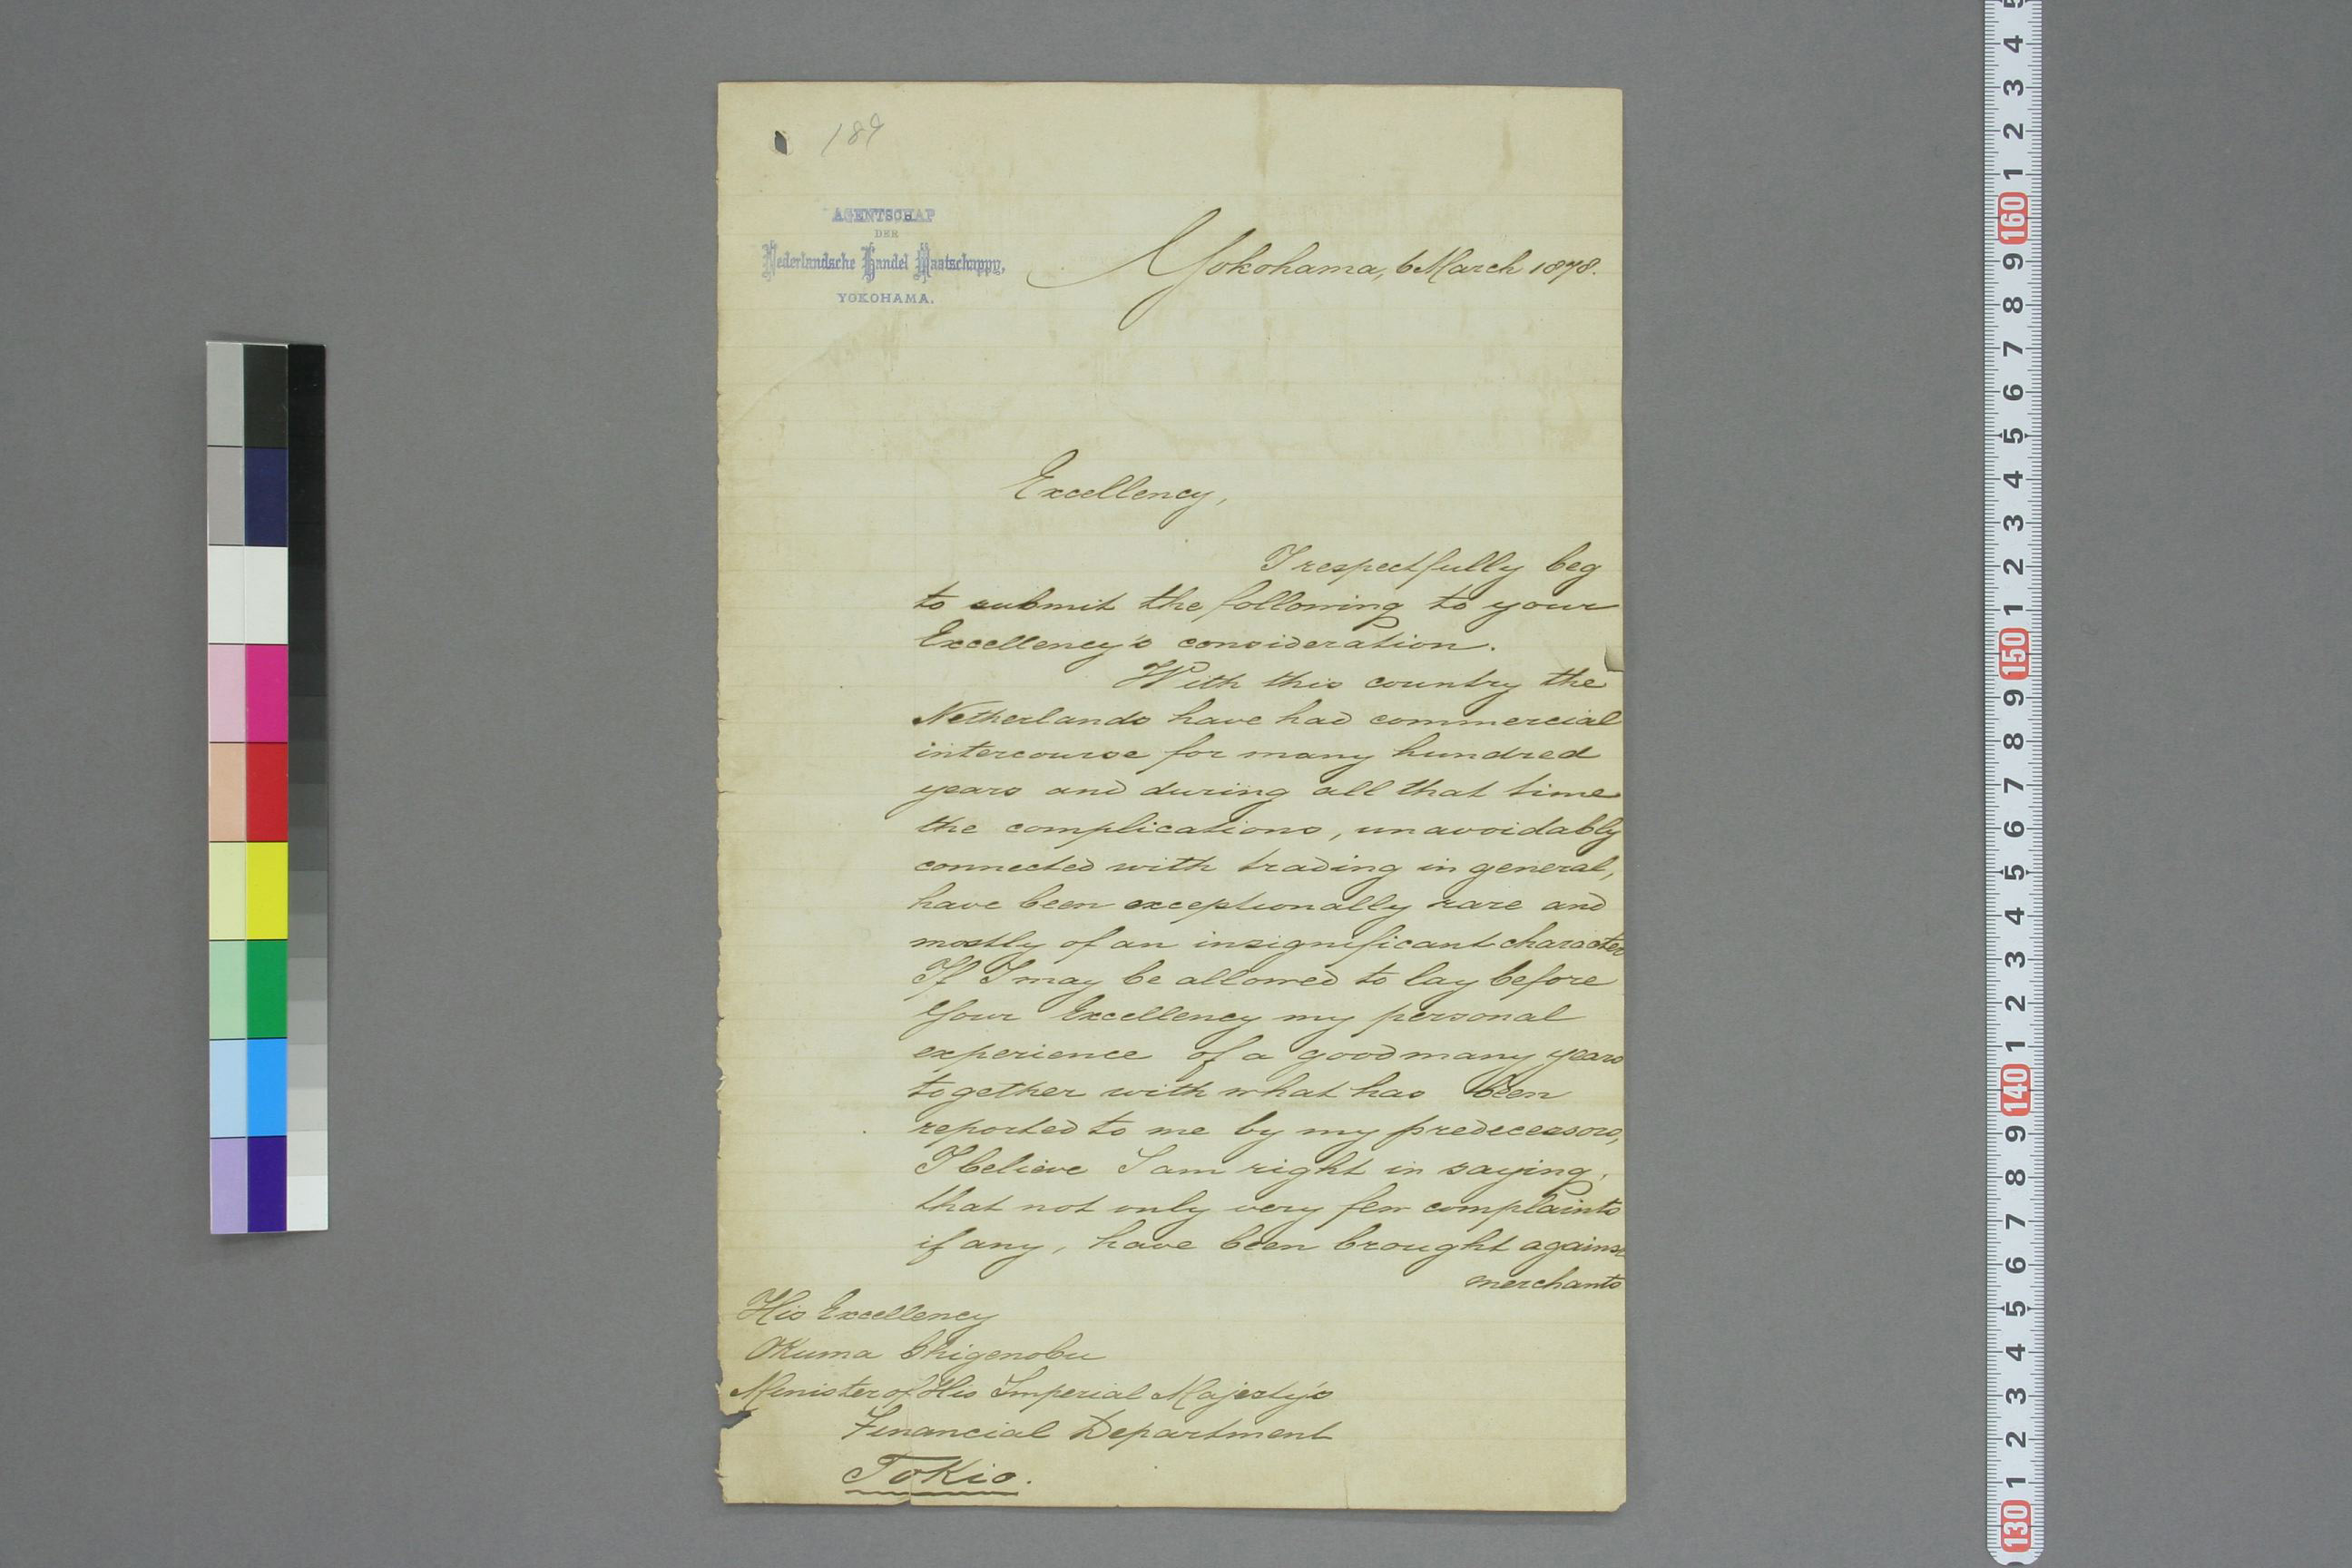 189
AGENTSCHAP
DER
Nederlandsche Handel Maatschappy,
YOKOHAMA.
Yokohama, 6 March 1878.
Excellency,
I respectfully beg
to submit the following to your
Excellency's consideration.
With this country the
Netherlands have had commercial
intercourse for many hundred
years and during all that time
the complications, unavoidably
connected with trading in general,
have been exceptionally rare and
mostly of an insignificant character
If I may be allowed to lay before
Your Excellency my personal
experience of a good many years
together with what has been
reported to me by my predecessors,
I believe I am right in saying,
that not only very few complaints
if any, have been brought against
merchants
His Excellency
Okuma Shigenobu
Minister of His Imperial Majesty's
Financial Department
Tokio.
5
4
3
2
1
160
9
8
7
6
5
4
3
2
1
150
9
8
7
6
5
4
3
2
1
140
9
8
7
6
5
4
3
2
1
130